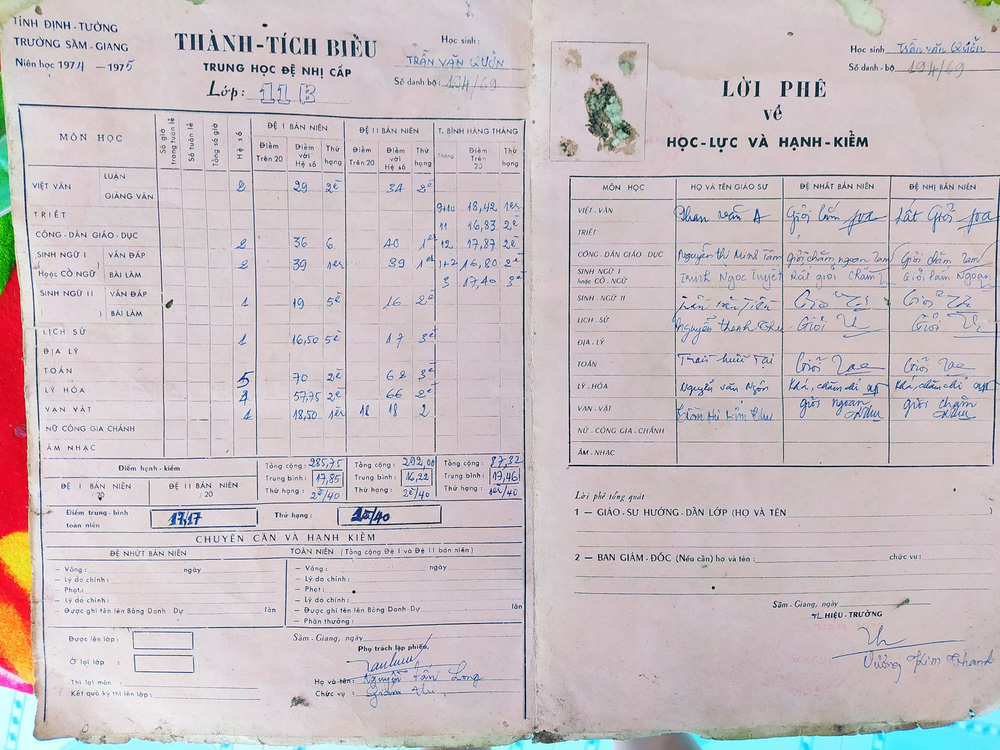 TỈNH ĐỊNH-TƯỜNG
TRƯỜNG SÂM-GIANG
Niên học 1974 – 1975
THÀNH-TÍCH BIỂU
TRUNG HỌC ĐỆ NHỊ CẤP
Lớp: 11 B
Học sinh:
TRẦN VĂN
Số danh bộ: 194/69
MÔN HỌC
Số giờ trong tuần lễ
Số tuần lễ
Tổng số giờ
Hệ số
ĐỆ I BÁN NIÊN
ĐỆ II BÁN NIÊN
T. BÌNH HÀNG THÁNG
Điểm Trên 20
Điểm với Hệ số
Thứ hạng
Điểm Trên 20
Điểm với Hệ số
Thứ hạng
Tháng
Điểm Trên 20
Thứ hạng
VIỆT VĂN
LUẬN
GIẢNG VĂN
2 29 2è 34 2è
9+10 18,42 1er
TRIẾT
11 16,83 2è
CÔNG-DÂN GIÁO-DỤC
2 36 6 40 1er 12 17,87 2è
SINH NGỮ I VẤN ĐÁP
Hoặc CỔ NGỮ BÀI LÀM
2 39 1er 39 1er 1+2 16,80 2è
3 17,40 3è
SINH NGỮ II VẤN ĐÁP
( ) BÀI LÀM
1 19 5è 16 2è
LỊCH SỬ
ĐỊA LÝ
1 16,50 5è 17 3è
TOÁN
5 70 2è 62 3è
LÝ HÓA
4 57,75 2è 66 2è
VẠN VẬT
1 18,50 1er 18 18 2
NỮ CÔNG GIA CHÁNH
ÂM NHẠC
Điểm hạnh-kiểm
ĐỆ I BÁN NIÊN
/20
ĐỆ II BÁN NIÊN
/20
Tổng cộng: 285,75
Trung bình: 17,85
Thứ hạng: 2è/40
Tổng cộng: 292,00
Trung bình: 16,22
Thứ hạng: 2è/40
Tổng cộng: 87,32
Trung bình: 17,46
Thứ hạng: 1er/40
Điểm trung-bình toàn niên
17,17
Thứ hạng:
/40
CHUYÊN CẦN VÀ HẠNH KIỂM
ĐỆ NHỨT BÁN NIÊN
TOÀN NIÊN (Tổng cộng Đệ I và Đệ II bán niên)
– Vắng: ngày
– Lý do chính:
– Phạt:
– Lý do chính:
– Được ghi tên lên Bảng Danh-Dự lần
– Vắng: ngày
– Lý do chính:
– Phạt:
– Lý do chính:
– Được ghi tên lên Bảng Danh-Dự lần
– Phần thưởng:
Được lên lớp:
Ở lại lớp:
Thi lại môn:
Kết quả kỳ thi lên lớp:
Sâm-Giang, ngày
Phụ trách lập phiếu,
Họ và tên: Nguyễn Tấn Long
Chức vụ: Giám Thị
Học sinh Trần Văn
Số danh-bộ 194/69
LỜI PHÊ
về
HỌC-LỰC VÀ HẠNH-KIỂM
MÔN HỌC
HỌ VÀ TÊN GIÁO SƯ
ĐỆ NHẤT BÁN NIÊN
ĐỆ NHỊ BÁN NIÊN
VIỆT-VĂN Phan văn A Giỏi lắm Rất Giỏi
TRIẾT
CÔNG-DÂN GIÁO-DỤC Nguyễn thị Minh Tâm giỏi chăm ngoan Tam Giỏi chăm Tam
SINH NGỮ I
hoặc CỔ-NGỮ
Trịnh Ngọc Tuyết Rất giỏi Chăm Giỏi lắm Ngoan
SINH-NGỮ II
Giỏi Giỏi
LỊCH-SỬ Nguyễn thanh Giỏi Giỏi
ĐỊA-LÝ
TOÁN Trần hữu Tại Giỏi Giỏi
LÝ-HÓA Nguyễn văn Ngôn Khá, chăm chỉ Khá, chăm chỉ
VẠN-VẬT giỏi ngoan giỏi chăm
NỮ-CÔNG GIA-CHÁNH
ÂM-NHẠC
Lời phê tổng quát
1 — GIÁO-SƯ HƯỚNG-DẪN LỚP (HỌ VÀ TÊN )
2 — BAN GIÁM-ĐỐC (Nếu cần) họ và tên: chức vụ:
Sâm-Giang, ngày
TL HIỆU-TRƯỞNG
Vương Kim Thanh